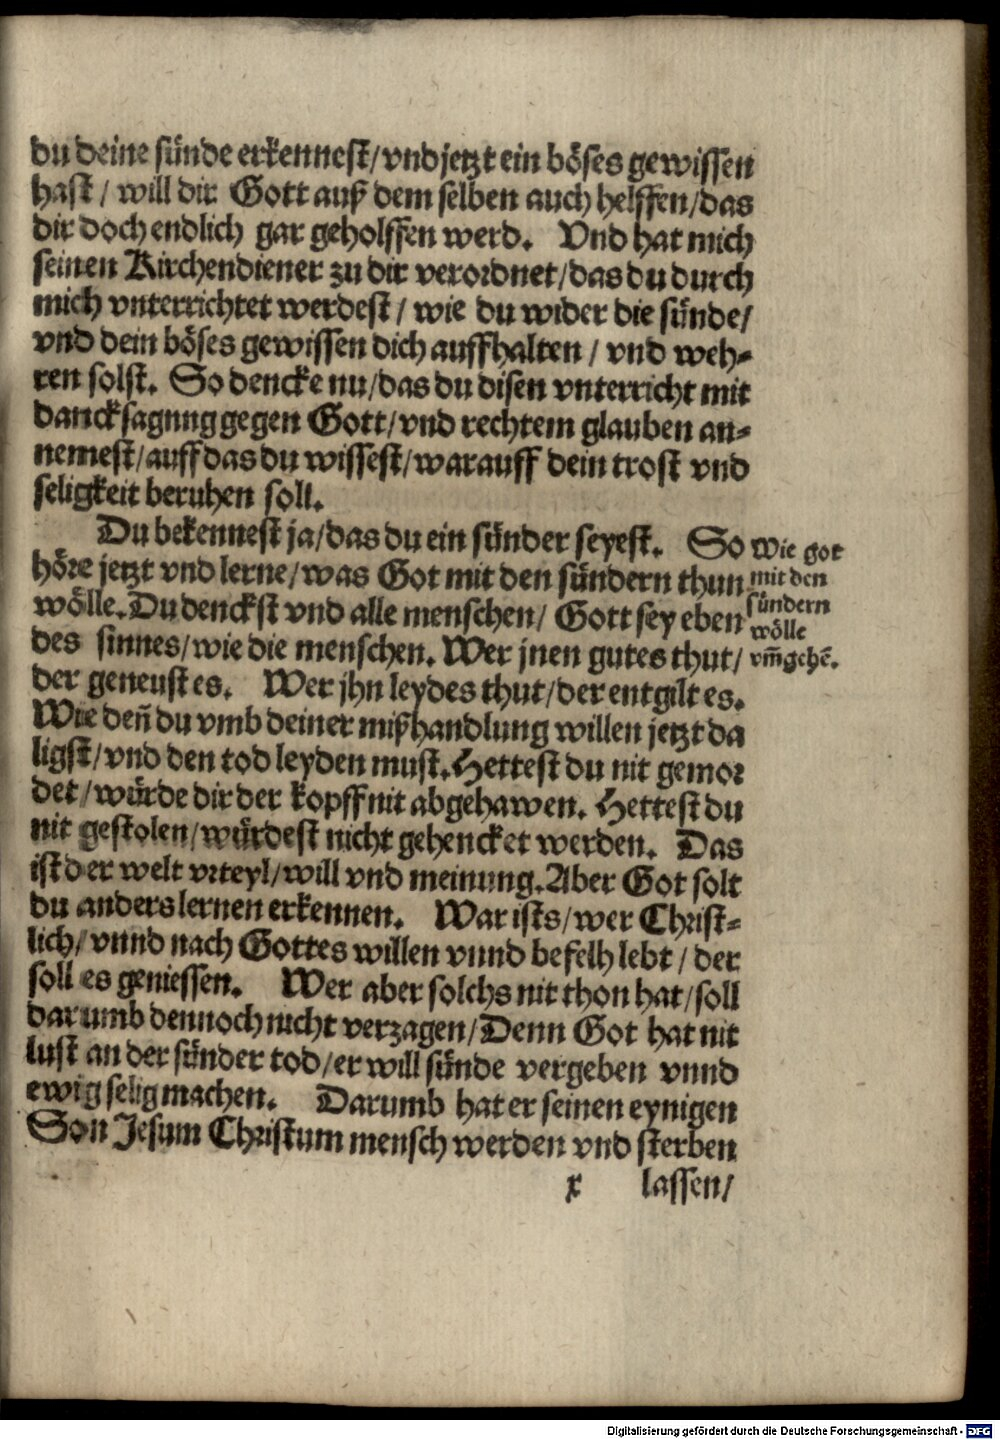 du deine sünde erkennest/vnd jetzt ein böses gewissen
hast / will dir Gott auß dem selben auch helffen/das
dir doch endlich gar geholffen werd. Vnd hat mich
seinen Kirchendiener zu dir verordnet/das du durch
mich vnterrichtet werdest / wie du wider die sünde/
vnd dein böses gewissen dich auffhalten / vnd weh-
ren solst. So dencke nu/das du disen vnterricht mit
dancksagung gegen Gott/vnd rechtem glauben an-
nemest/auff das du wissest/warauff dein trost vnd
seligkeit beruhen soll.
Du bekennest ja/das du ein sünder seyest. So
höre jetzt vnd lerne/was Got mit den sündern thun
wölle. Du denckst vnd alle menschen/ Gott sey eben
des sinnes/wie die menschen. Wer jnen gutes thut/
der geneust es. Wer jhn leydes thut/der entgilt es.
Wie deñ du vmb deiner mißhandlung willen jetzt da
ligst/vnd den tod leyden must. Hettest du nit gemor
det/würde dir der kopff nit abgehawen. Hettest du
nit gestolen/würdest nicht gehencket werden. Das
ist der welt vrteyl/will vnd meinung. Aber Got solt
du anders lernen erkennen. War ists/wer Christ-
lich/vnnd nach Gottes willen vnnd befelh lebt / der
soll es geniessen. Wer aber solchs nit thon hat/soll
darumb dennoch nicht verzagen/Denn Got hat nit
lust an der sünder tod/er will sünde vergeben vnnd
ewig selig machen. Darumb hat er seinen eynigen
Son Jesum Christum mensch werden vnd sterben
x lassen/
Wie got
mit den
sündern
wölle
vm̃gehẽ.
Digitalisierung gefördert durch die Deutsche Forschungsgemeinschaft - DFG